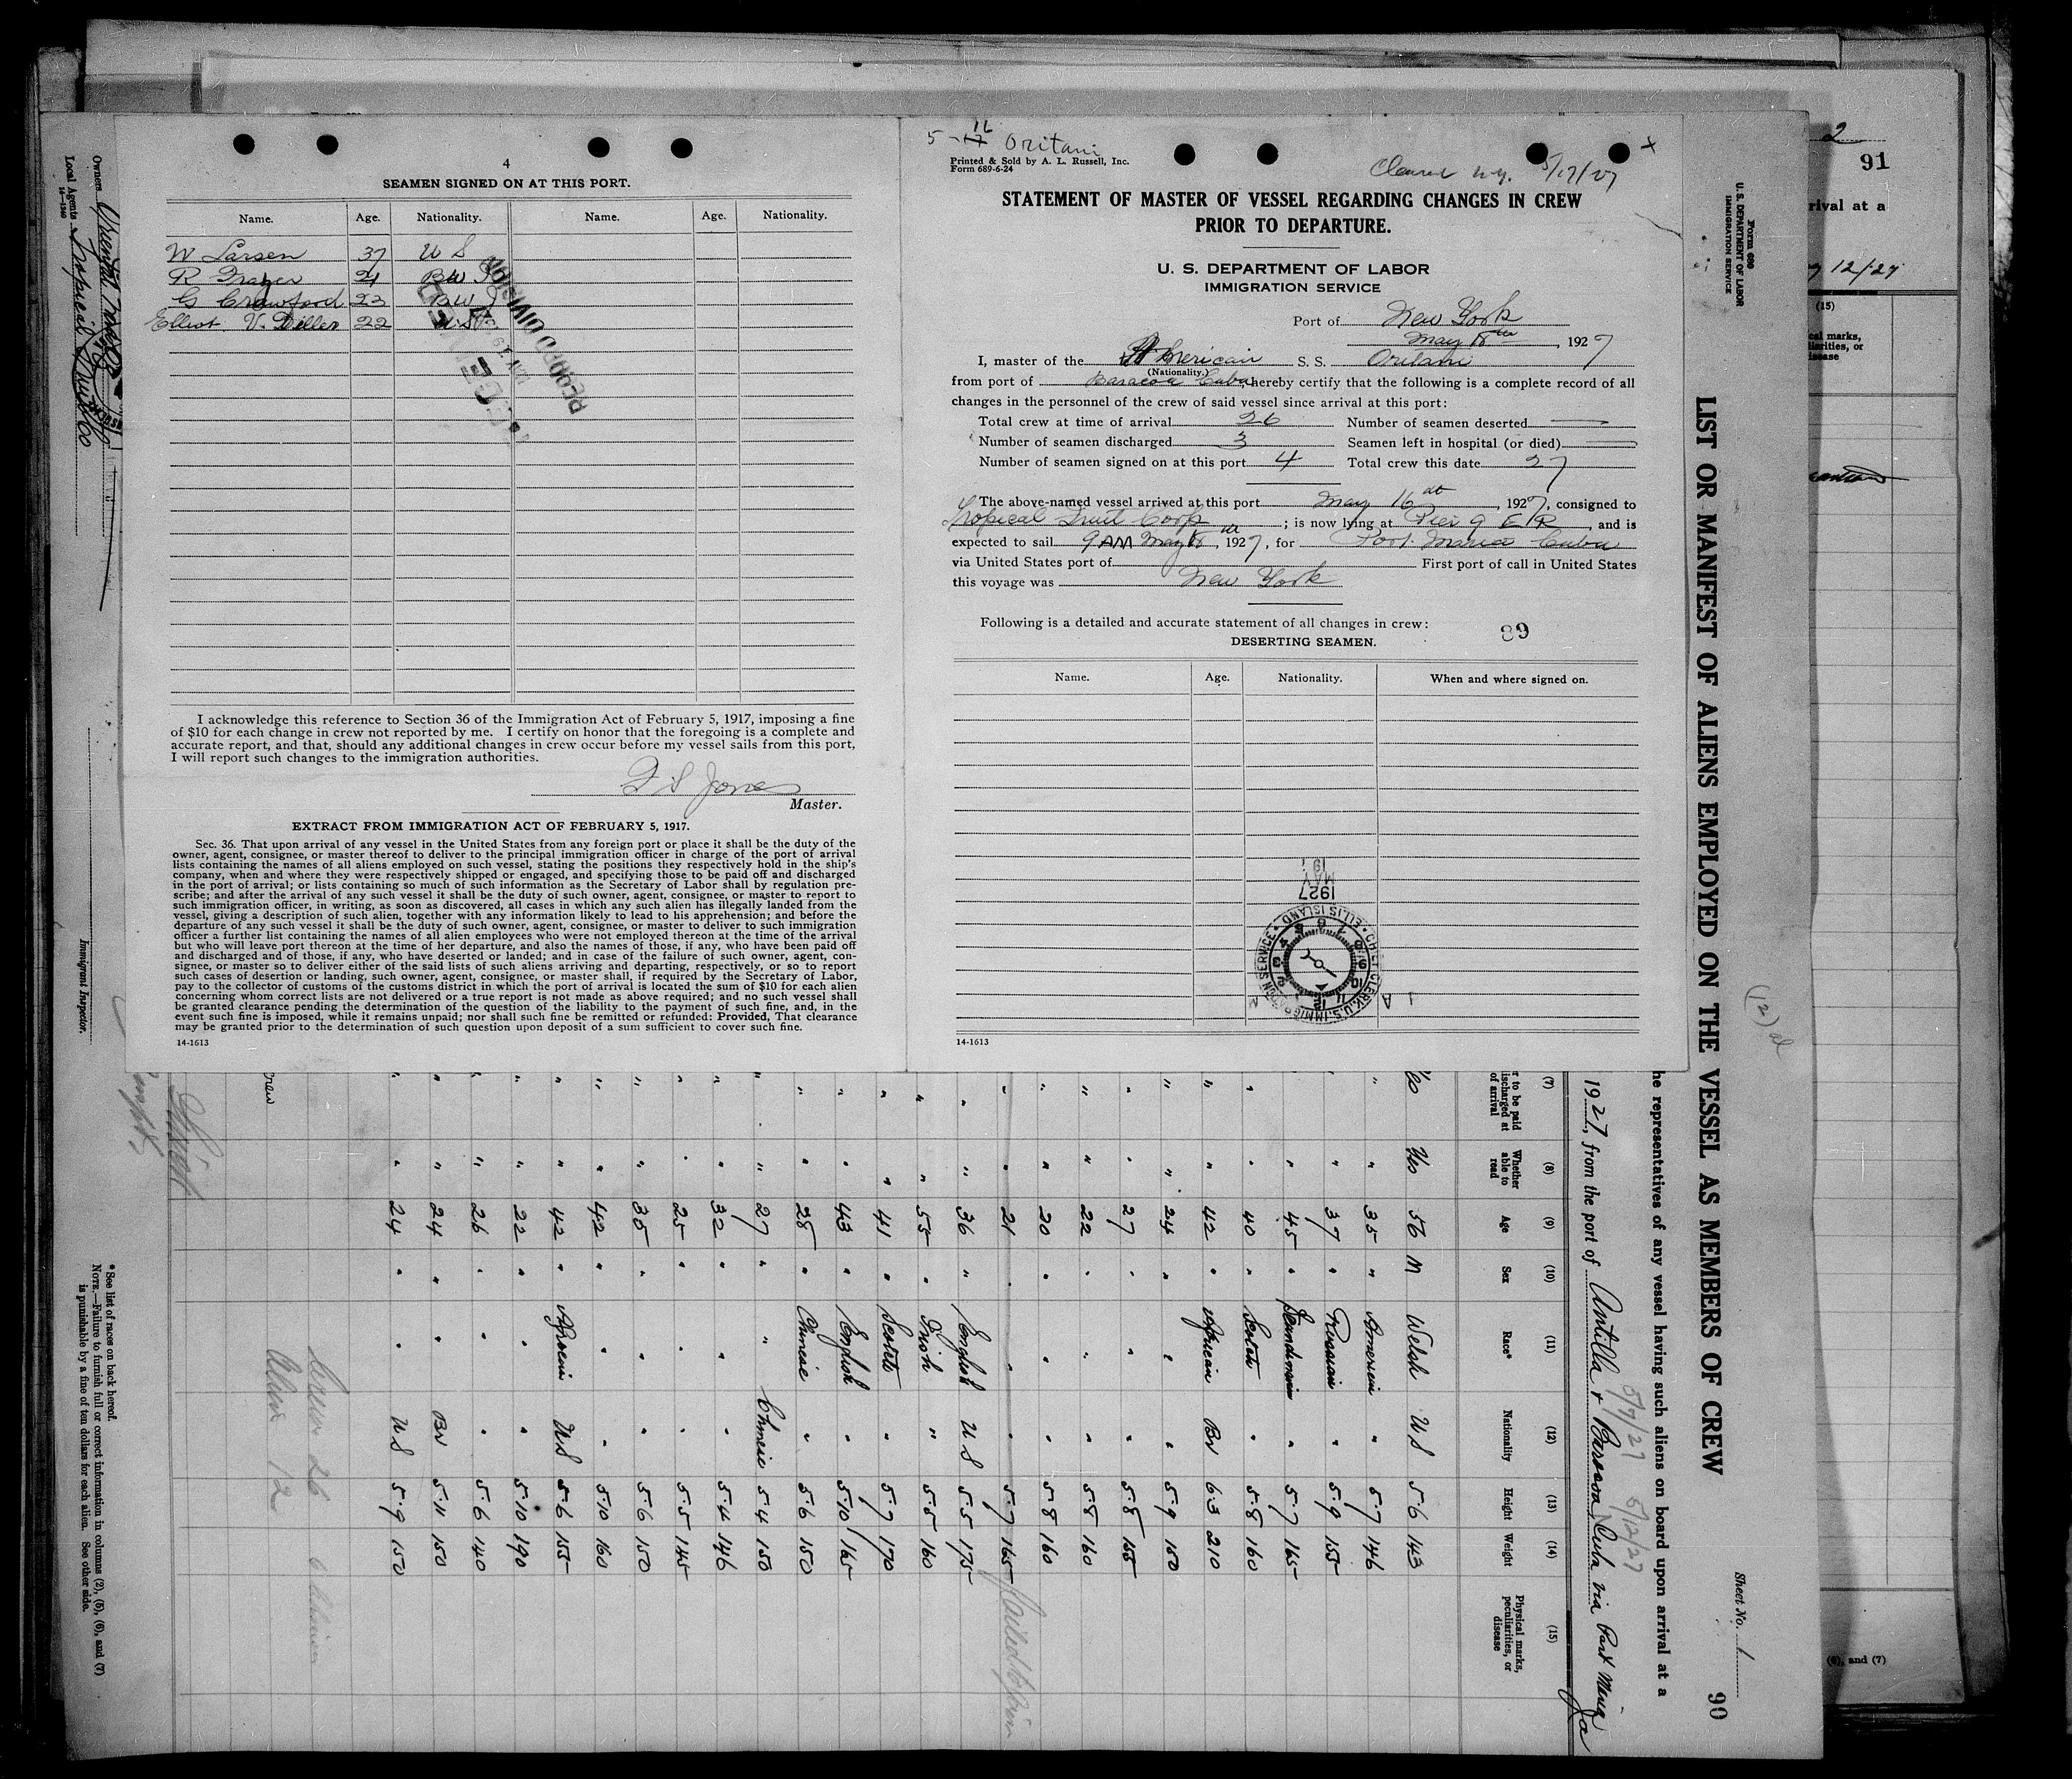 4
SEAMEN SIGNED ON AT THIS PORT.
Name. Age. Nationality. Name. Age. Nationality.
W Larsen 37 U S
R Frazer 21 B W I
G Crawford 23 B W I
Elliot V. Diller 22 U S
RECORD DIVISION
I acknowledge this reference to Section 36 of the Immigration Act of February 5, 1917, imposing a fine
of $10 for each change in crew not reported by me. I certify on honor that the foregoing is a complete and
accurate report, and that, should any additional changes in crew occur before my vessel sails from this port,
I will report such changes to the immigration authorities.
Jones
Master.
EXTRACT FROM IMMIGRATION ACT OF FEBRUARY 5, 1917.
Sec. 36. That upon arrival of any vessel in the United States from any foreign port or place it shall be the duty of the
owner, agent, consignee, or master thereof to deliver to the principal immigration officer in charge of the port of arrival
lists containing the names of all aliens employed on such vessel, stating the positions they respectively hold in the ship's
company, when and where they were respectively shipped or engaged, and specifying those to be paid off and discharged
in the port of arrival; or lists containing so much of such information as the Secretary of Labor shall by regulation pre-
scribe; and after the arrival of any such vessel it shall be the duty of such owner, agent, consignee, or master to report to
such immigration officer, in writing, as soon as discovered, all cases in which any such alien has illegally landed from the
vessel, giving a description of such alien, together with any information likely to lead to his apprehension; and before the
departure of any such vessel it shall be the duty of such owner, agent, consignee, or master to deliver to such immigration
officer a further list containing the names of all alien employees who were not employed thereon at the time of the arrival
but who will leave port thereon at the time of her departure, and also the names of those, if any, who have been paid off
and discharged and of those, if any, who have deserted or landed; and in case of the failure of such owner, agent, con-
signee, or master so to deliver either of the said lists of such aliens arriving and departing, respectively, or so to report
such cases of desertion or landing, such owner, agent, consignee, or master shall, if required by the Secretary of Labor,
pay to the collector of customs of the customs district in which the port of arrival is located the sum of $10 for each alien
concerning whom correct lists are not delivered or a true report is not made as above required; and no such vessel shall
be granted clearance pending the determination of the question of the liability to the payment of such fine, and, in the
event such fine is imposed, while it remains unpaid; nor shall such fine be remitted or refunded: Provided, That clearance
may be granted prior to the determination of such question upon deposit of a sum sufficient to cover such fine.
14-1613
5-16 Oritani
Printed & Sold by A. L. Russell, Inc.
Form 689-6-24
Cleared N.Y. 5/17/27
STATEMENT OF MASTER OF VESSEL REGARDING CHANGES IN CREW
PRIOR TO DEPARTURE.
U. S. DEPARTMENT OF LABOR
IMMIGRATION SERVICE
Port of New York
May 18th, 1927
I, master of the American S. S. Oritani
(Nationality.)
from port of Baracoa Cuba, hereby certify that the following is a complete record of all
changes in the personnel of the crew of said vessel since arrival at this port:
Total crew at time of arrival 26 Number of seamen deserted
Number of seamen discharged 3 Seamen left in hospital (or died)
Number of seamen signed on at this port 4 Total crew this date 27
The above-named vessel arrived at this port May 16, 1927, consigned to
Tropical Fruit Corp; is now lying at Pier 9 E R, and is
expected to sail 9 AM May 18, 1927, for Port Maria Cuba
via United States port of First port of call in United States
this voyage was New York
Following is a detailed and accurate statement of all changes in crew:
89
DESERTING SEAMEN.
Name. Age. Nationality. When and where signed on.
1927
CHIEF CLERK, U.S. IMMIGRATION SERVICE ELLIS ISLAND
14-1613
Owners
Local Agents Tropical Fruit Co
Immigrant Inspector.
Form 689
U. S. DEPARTMENT OF LABOR
IMMIGRATION SERVICE
LIST OR MANIFEST OF ALIENS EMPLOYED ON THE VESSEL AS MEMBERS OF CREW
Sheet No. 1
90
the representatives of any vessel having such aliens on board upon arrival at a
5/7/27 5/12/27
1927, from the port of Antilla + Baracoa, Cuba via Port Maria Ja
(7) (8) (9) (10) (11) (12) (13) (14) (15)
Whether able to read Age Sex Race* Nationality Height Weight Physical marks, peculiarities, or disease
56 M Welsh U S 5.6 143
35 " American " 5.7 146
37 " Russian " 5.9 155
45 " " 5.7 165
40 " Scotch " 5.8 160
42 " African Br 6.3 210
24 " " " 5.9 150
27 " " " 5.8 155
22 " " " 5.8 160
20 " " " 5.8 160
21 " " " 5.7 165
36 " English U S 5.5 175
55 " Irish " 5.5 160
41 " Scotch " 5.7 170
43 " English " 5.10 165
28 " Chinese " 5.6 150
27 " " Chinese 5.4 150
32 " " " 5.4 146
25 " " " 5.5 145
35 " " " 5.6 150
42 " " " 5.10 160
42 " African U S 5.6 155
22 " " " 5.10 190
26 " " " 5.6 140
24 " " Br 5.11 150
24 " " U S 5.9 150
Crew 26
Alien 12
* See list of races on back hereof.
NOTE.—Failure to furnish full or correct information in columns (2), (5), (6), and (7)
is punishable by a fine of ten dollars for each alien. See other side.
2
91
rival at a
12/27
(15)
(6), and (7)